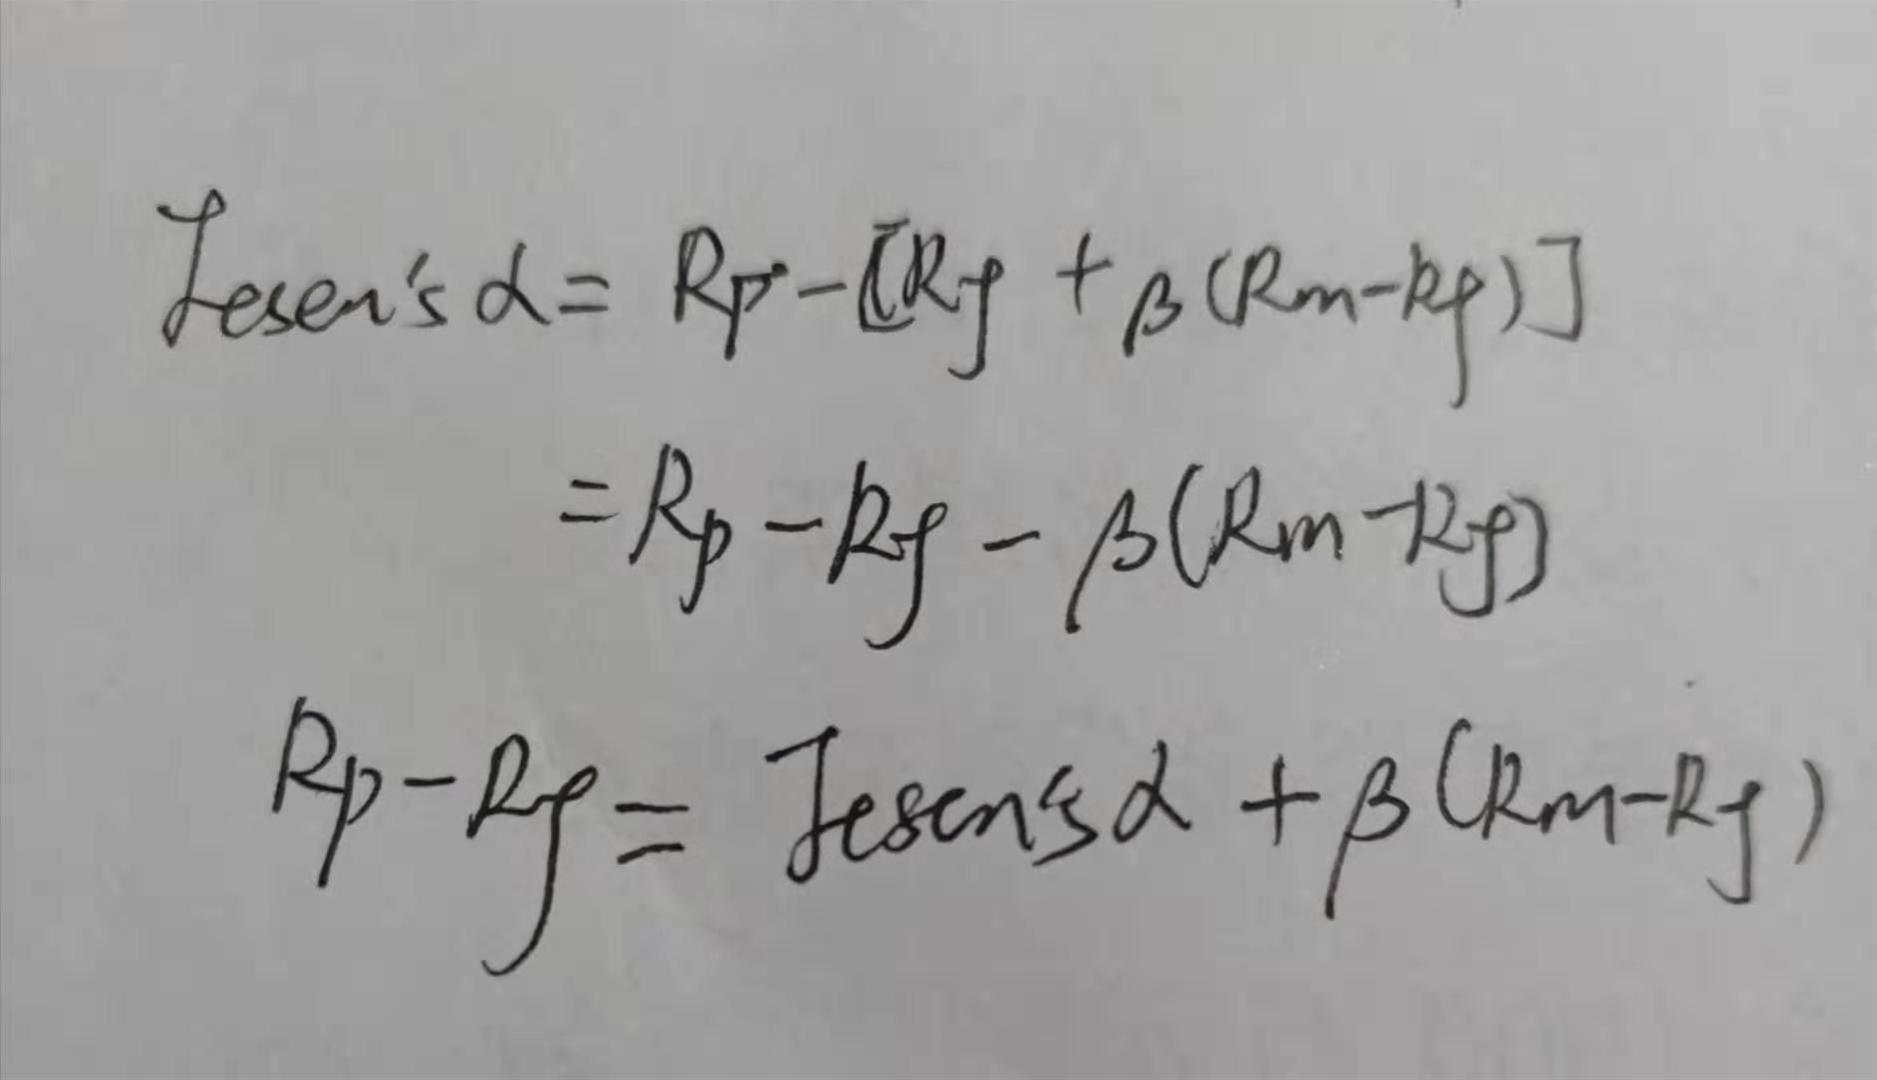 Jesen's α = Rp - [Rf + β(Rm - Rf)]
= Rp - Rf - β(Rm - Rf)
Rp - Rf = Jesen's α + β(Rm - Rf)